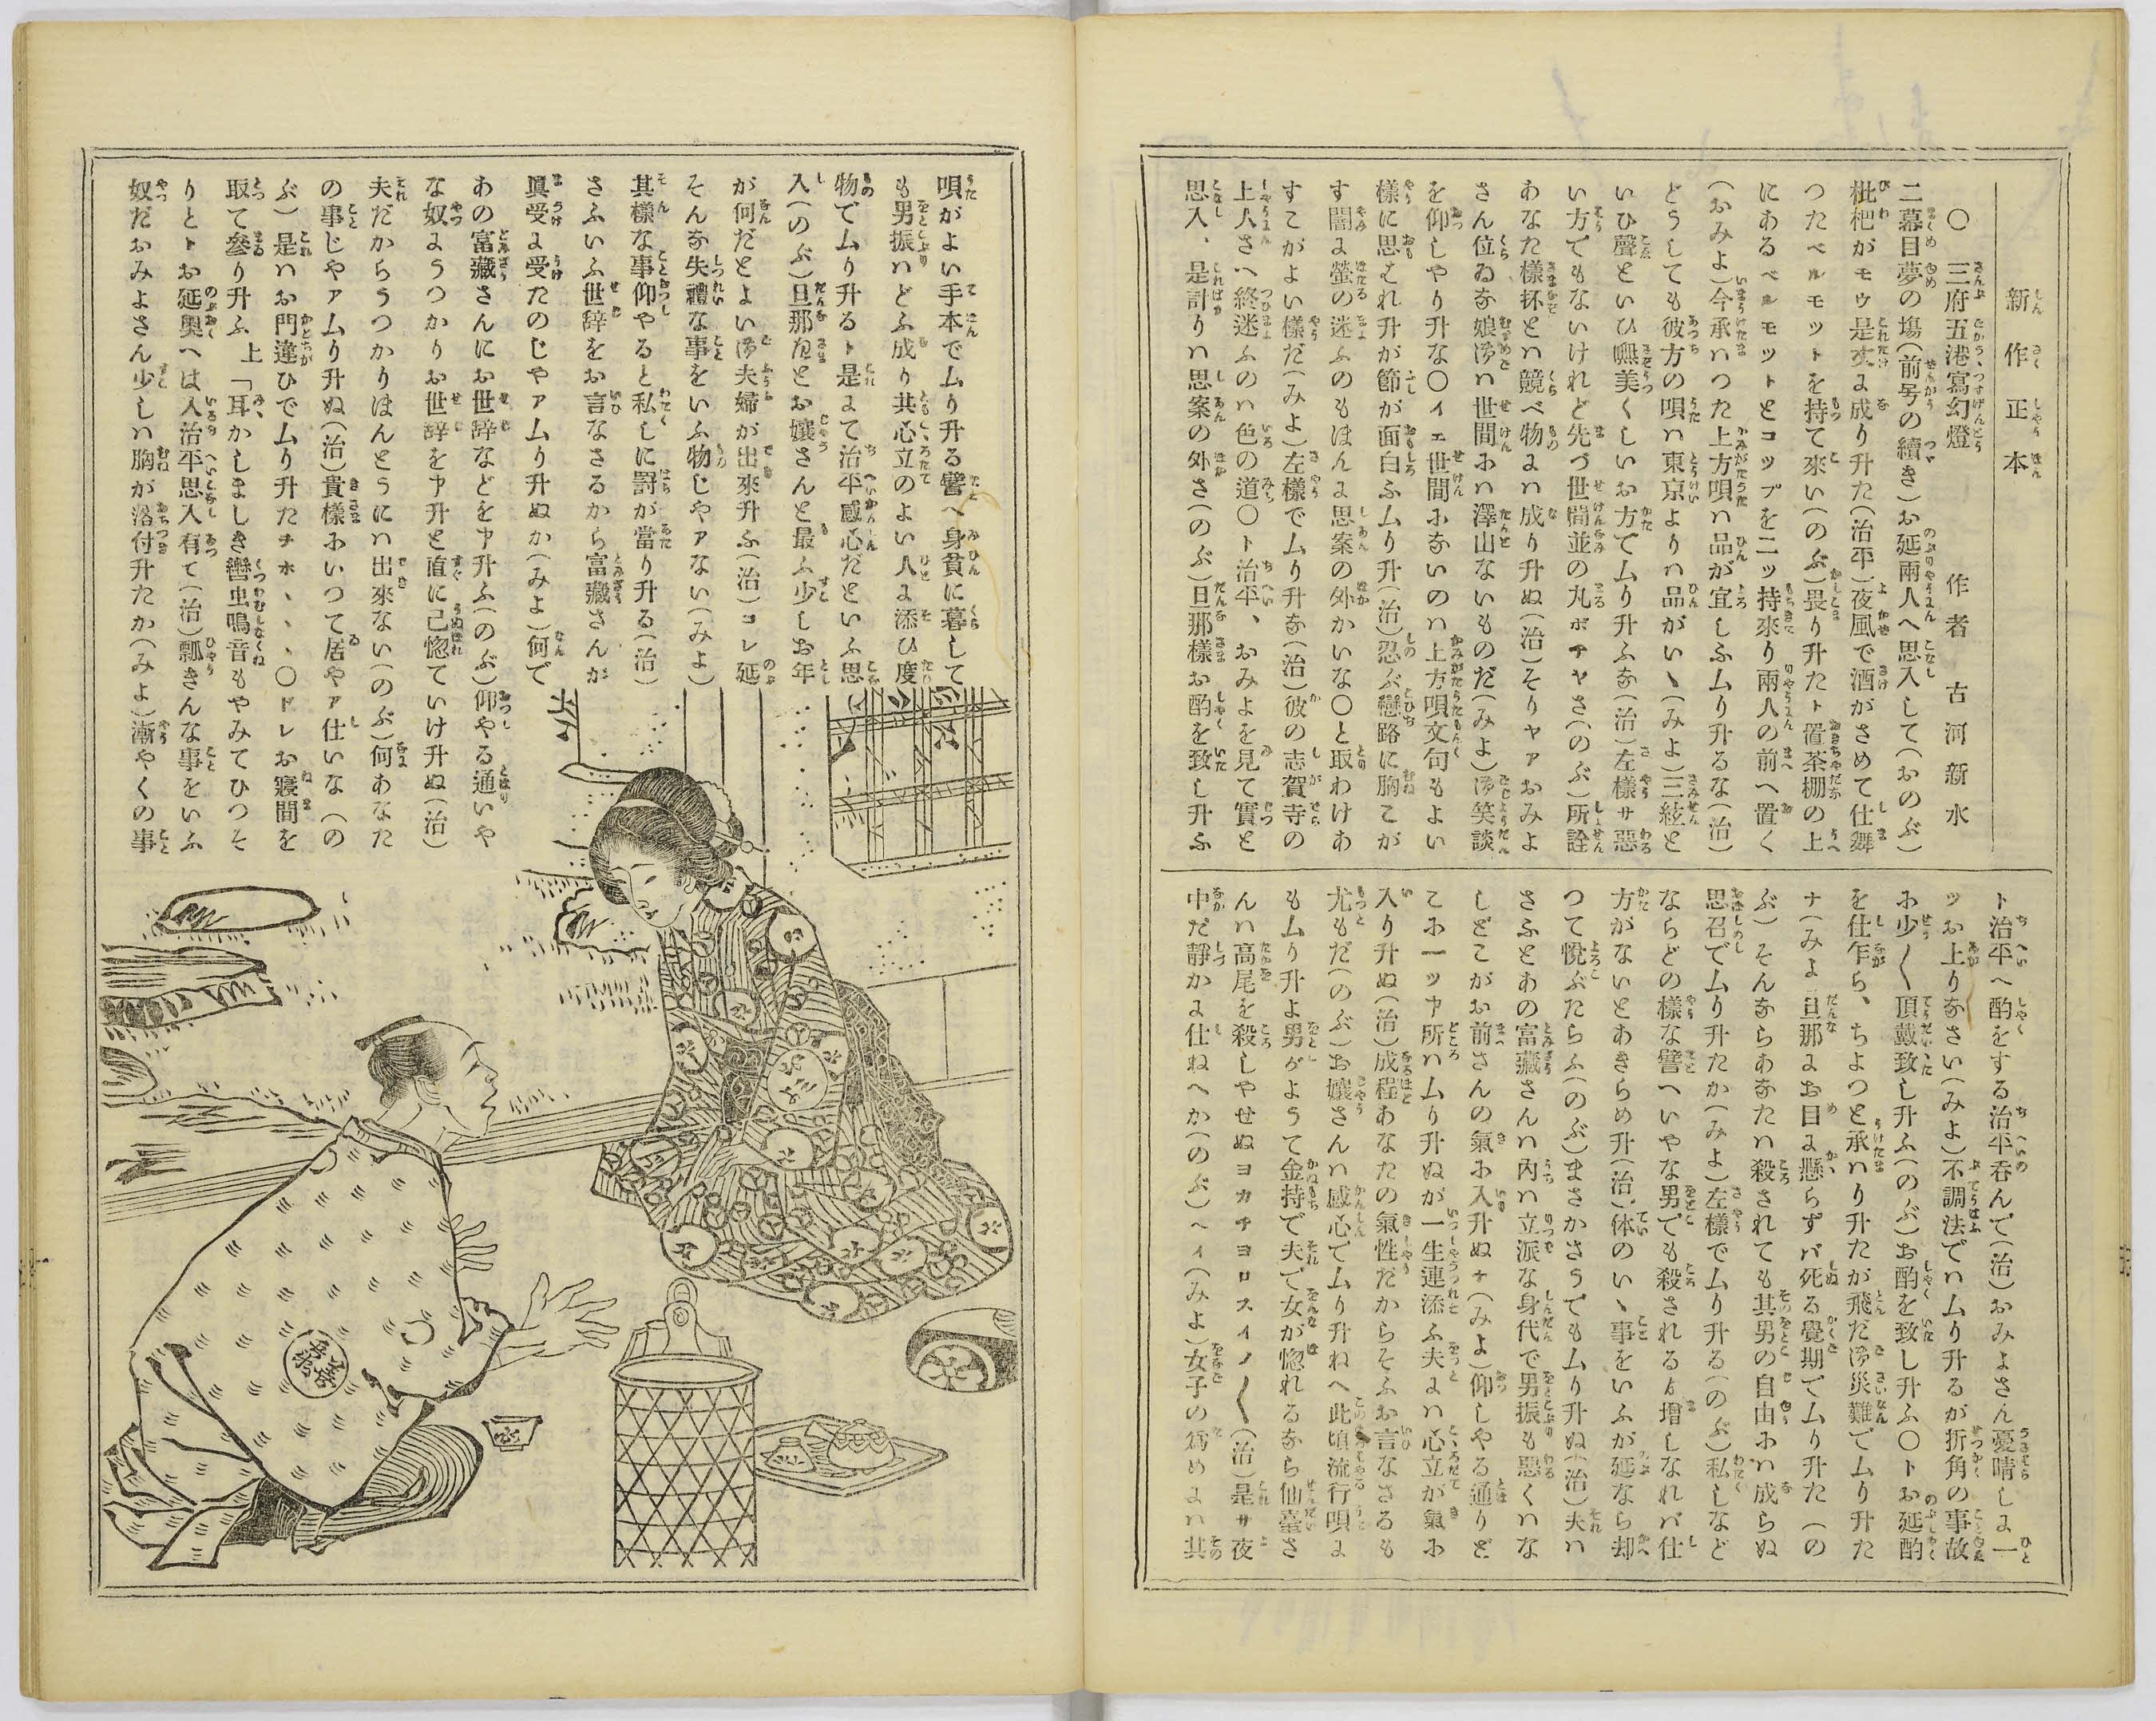 新作正本　作者　古河新水
〇　三府五港寫幻燈
二幕目夢の塲(前号の續き)お延兩人へ思入して(おのぶ)
枇杷がモウ是丈よ成り升た(治平)夜風で酒がさめて仕舞
つたベルモットを持て來い(のぶ)畏り升たト置茶棚の上
にあるベルモットとコップを二ッ持來り兩人の前へ置く
(おみよ)今承ハつた上方唄ハ品が宜しふムり升るな(治)
どうしても彼方の唄ハ東京よりハ品がいゝ(みよ)三絃と
いひ聲といひ嘸美くしいお方でムり升ふな(治)左樣サ惡
い方でもないけれど先づ世間並の丸ポチヤさ(のぶ)所詮
あなた樣抔とハ競べ物よハ成り升ぬ(治)そりヤアおみよ
さん位ゐな娘御ハ世間ホハ澤山ないものだ(みよ)御笑談
を仰しやり升な〇イエ世間ホないのハ上方唄文句もよい
樣に思はれ升が節が面白ふムり升(治)忍ぶ戀路に胸こが
す闇よ螢の迷ふのもほんよ思案の外かいな〇と取わけあ
すこがよい樣だ(みよ)左樣でムり升な(治)彼の志賀寺の
上人さへ終迷ふのハ色の道〇ト治平、おみよを見て實と
思入、是計りハ思案の外さ(のぶ)旦那樣お酌を致し升ふ
ト治平へ酌をする治平呑んで(治)おみよさん憂晴しよ一
ッお上りなさい(みよ)不調法でハムり升るが折角の事故
ホ少〱頂戴致し升ふ(のぶ)お酌を致し升ふ〇トお延酌
を仕乍ら、ちよつと承ハり升たが飛だ御災難でムり升た
ナ(みよ)旦那よお目よ懸らずバ死る覺期でムり升た(の
ぶ)そんならあなたハ殺されても其男の自由ホハ成らぬ
思召でムり升たか(みよ)左樣でムり升る(のぶ)私しなど
ならどの樣な譬へいやな男でも殺されるよ增しなれバ仕
方がないとあきらめ升(治)体のいゝ事をいふが延なら却
つて悅ぶたらふ(のぶ)まさかさうでもムり升ぬ(治)夫ハ
さふとあの富藏さんハ內ハ立派な身代で男振も惡くハな
しどこがお前さんの氣ホ入升ぬナ(みよ)仰しやる通りど
こホ一ッ申所ハムり升ぬが一生連添ふ夫よハ心立が氣ホ
入り升ぬ(治)成程あなたの氣性だからそふお言なさるも
尤もだ(のぶ)お孃さんハ感心でムり升ねへ此頃流行唄よ
もムり升よ男がようて金持で夫で女が惚れるなら仙臺さ
んハ高尾を殺しやせぬヨカチヨロスイノ〱(治)是サ夜
中だ靜かよ仕ねへか(のぶ)ヘイ(みよ)女子の爲めよハ其
唄がよい手本でムり升る譬へ身貧に暮して
も男振ハどふ成り共心立のよい人よ添ひ度
物でムり升るト是よて治平感心だといふ思
入(のぶ)旦那樣とお孃さんと最ふ少しお年
が何だとよい御夫婦が出來升ふ(治)コレ延
そんな失禮な事をいふ物じやアない(みよ)
其樣な事仰やると私しに罰が當り升る(治)
さふいふ世辞をお言なさるから富藏さんが
眞受よ受たのじやアムり升ぬか(みよ)何で
あの富藏さんにお世辞などを申升ふ(のぶ)仰やる通いや
な奴ようつかりお世辞を申升と直に己惚ていけ升ぬ(治)
夫だからうつかりほんとうにハ出來ない(のぶ)何あなた
の事じやアムり升ぬ(治)貴樣ホいつて居やア仕いな(の
ぶ)是ハお門違ひでムり升たチホ、、、〇ドレお寢間を
取て參り升ふ　上「耳かしましき轡虫鳴音もやみてひつそ
りとトお延奧へは入治平思入有て(治)瓢きんな事をいふ
奴だおみよさん少しハ胸が落付升たか(みよ)漸やくの事